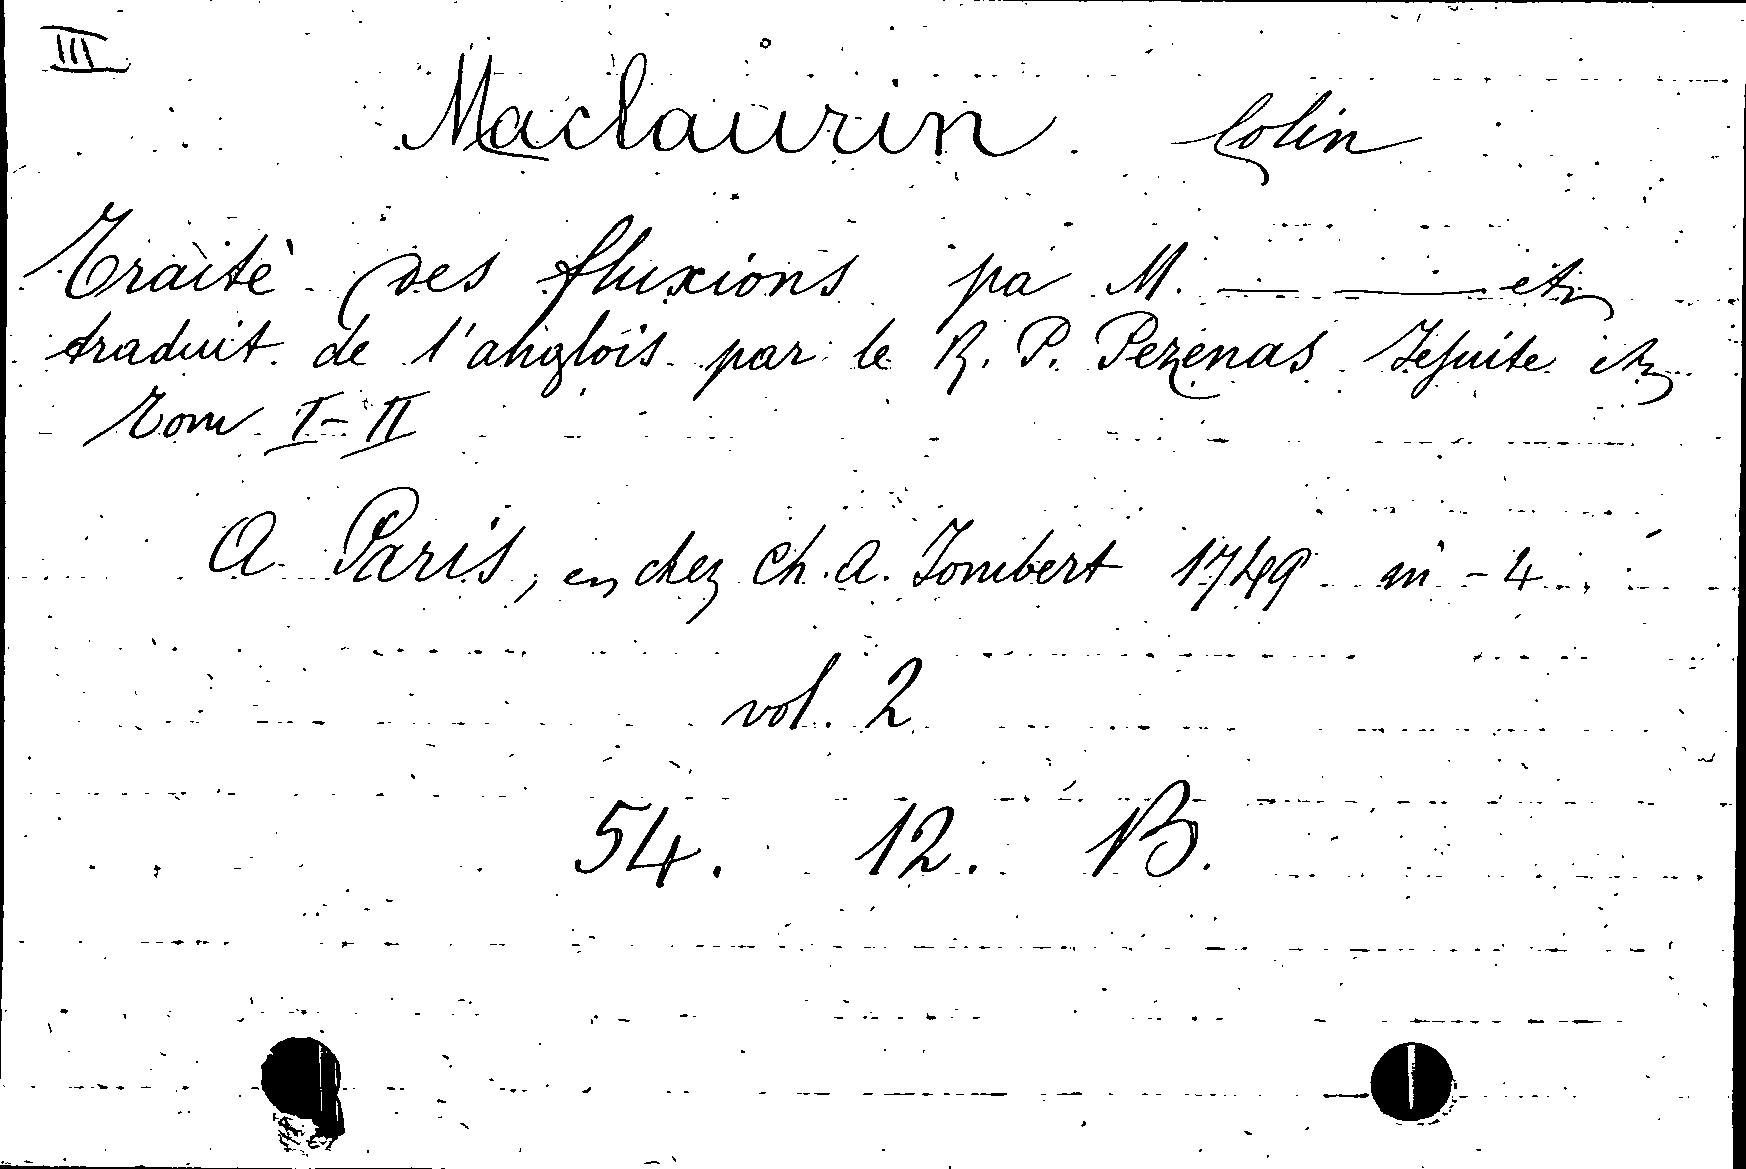 III
Maclaurin Colin
Traitè des fluxions pa M. — — etc
traduit de l'anglois par le R. P. Pezenas Jesuite etc
Tom I-II
A Paris, chez Ch. A. Jombert 1749 in -4.
vol. 2
54. 12. B.